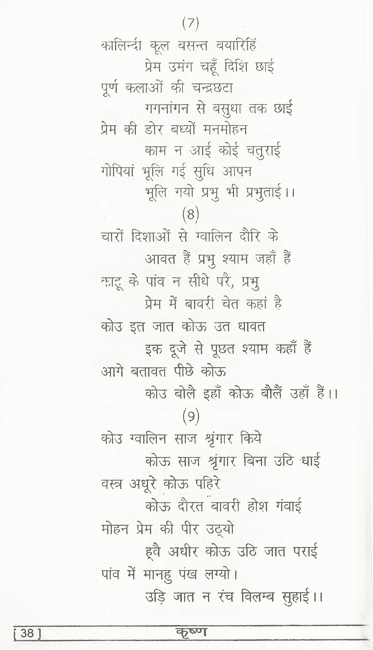 (7)
कालिन्दी कूल बसन्त वयारिहिं
प्रेम उमंग चहूँ दिशि छाई
पूर्ण कलाओं की चन्द्रछटा
गगनांगन से बसुधा तक छाई
प्रेम की डोर बध्यों मनमोहन
काम न आई कोई चतुराई
गोपियां भूलि गई सुधि आपन
भूलि गयो प्रभु भी प्रभुताई।।
(8)
चारों दिशाओं से ग्वालिन दौरि के
आवत हैं प्रभु श्याम जहाँ हैं
काहू के पांव न सीधे परै, प्रभु
प्रेम में बावरी चेत कहां है
कोउ इत जात कोऊ उत धावत
इक दूजे से पूछत श्याम कहाँ हैं
आगे बतावत पीछे कोऊ
कोउ बोलै इहाँ कोऊ बौलैं उहाँ हैं।।
(9)
कोउ ग्वालिन साज श्रृंगार किये
कोऊ साज श्रृंगार बिना उठि धाई
वस्त्र अधूरे कोऊ पहिरे
कोऊ दौरत बावरी होश गंवाई
मोहन प्रेम की पीर उठ्यो
ह्वै अधीर कोऊ उठि जात पराई
पांव में मानहु पंख लग्यो।
उड़ि जात न रंच विलम्ब सुहाई।।
[38] कृष्ण